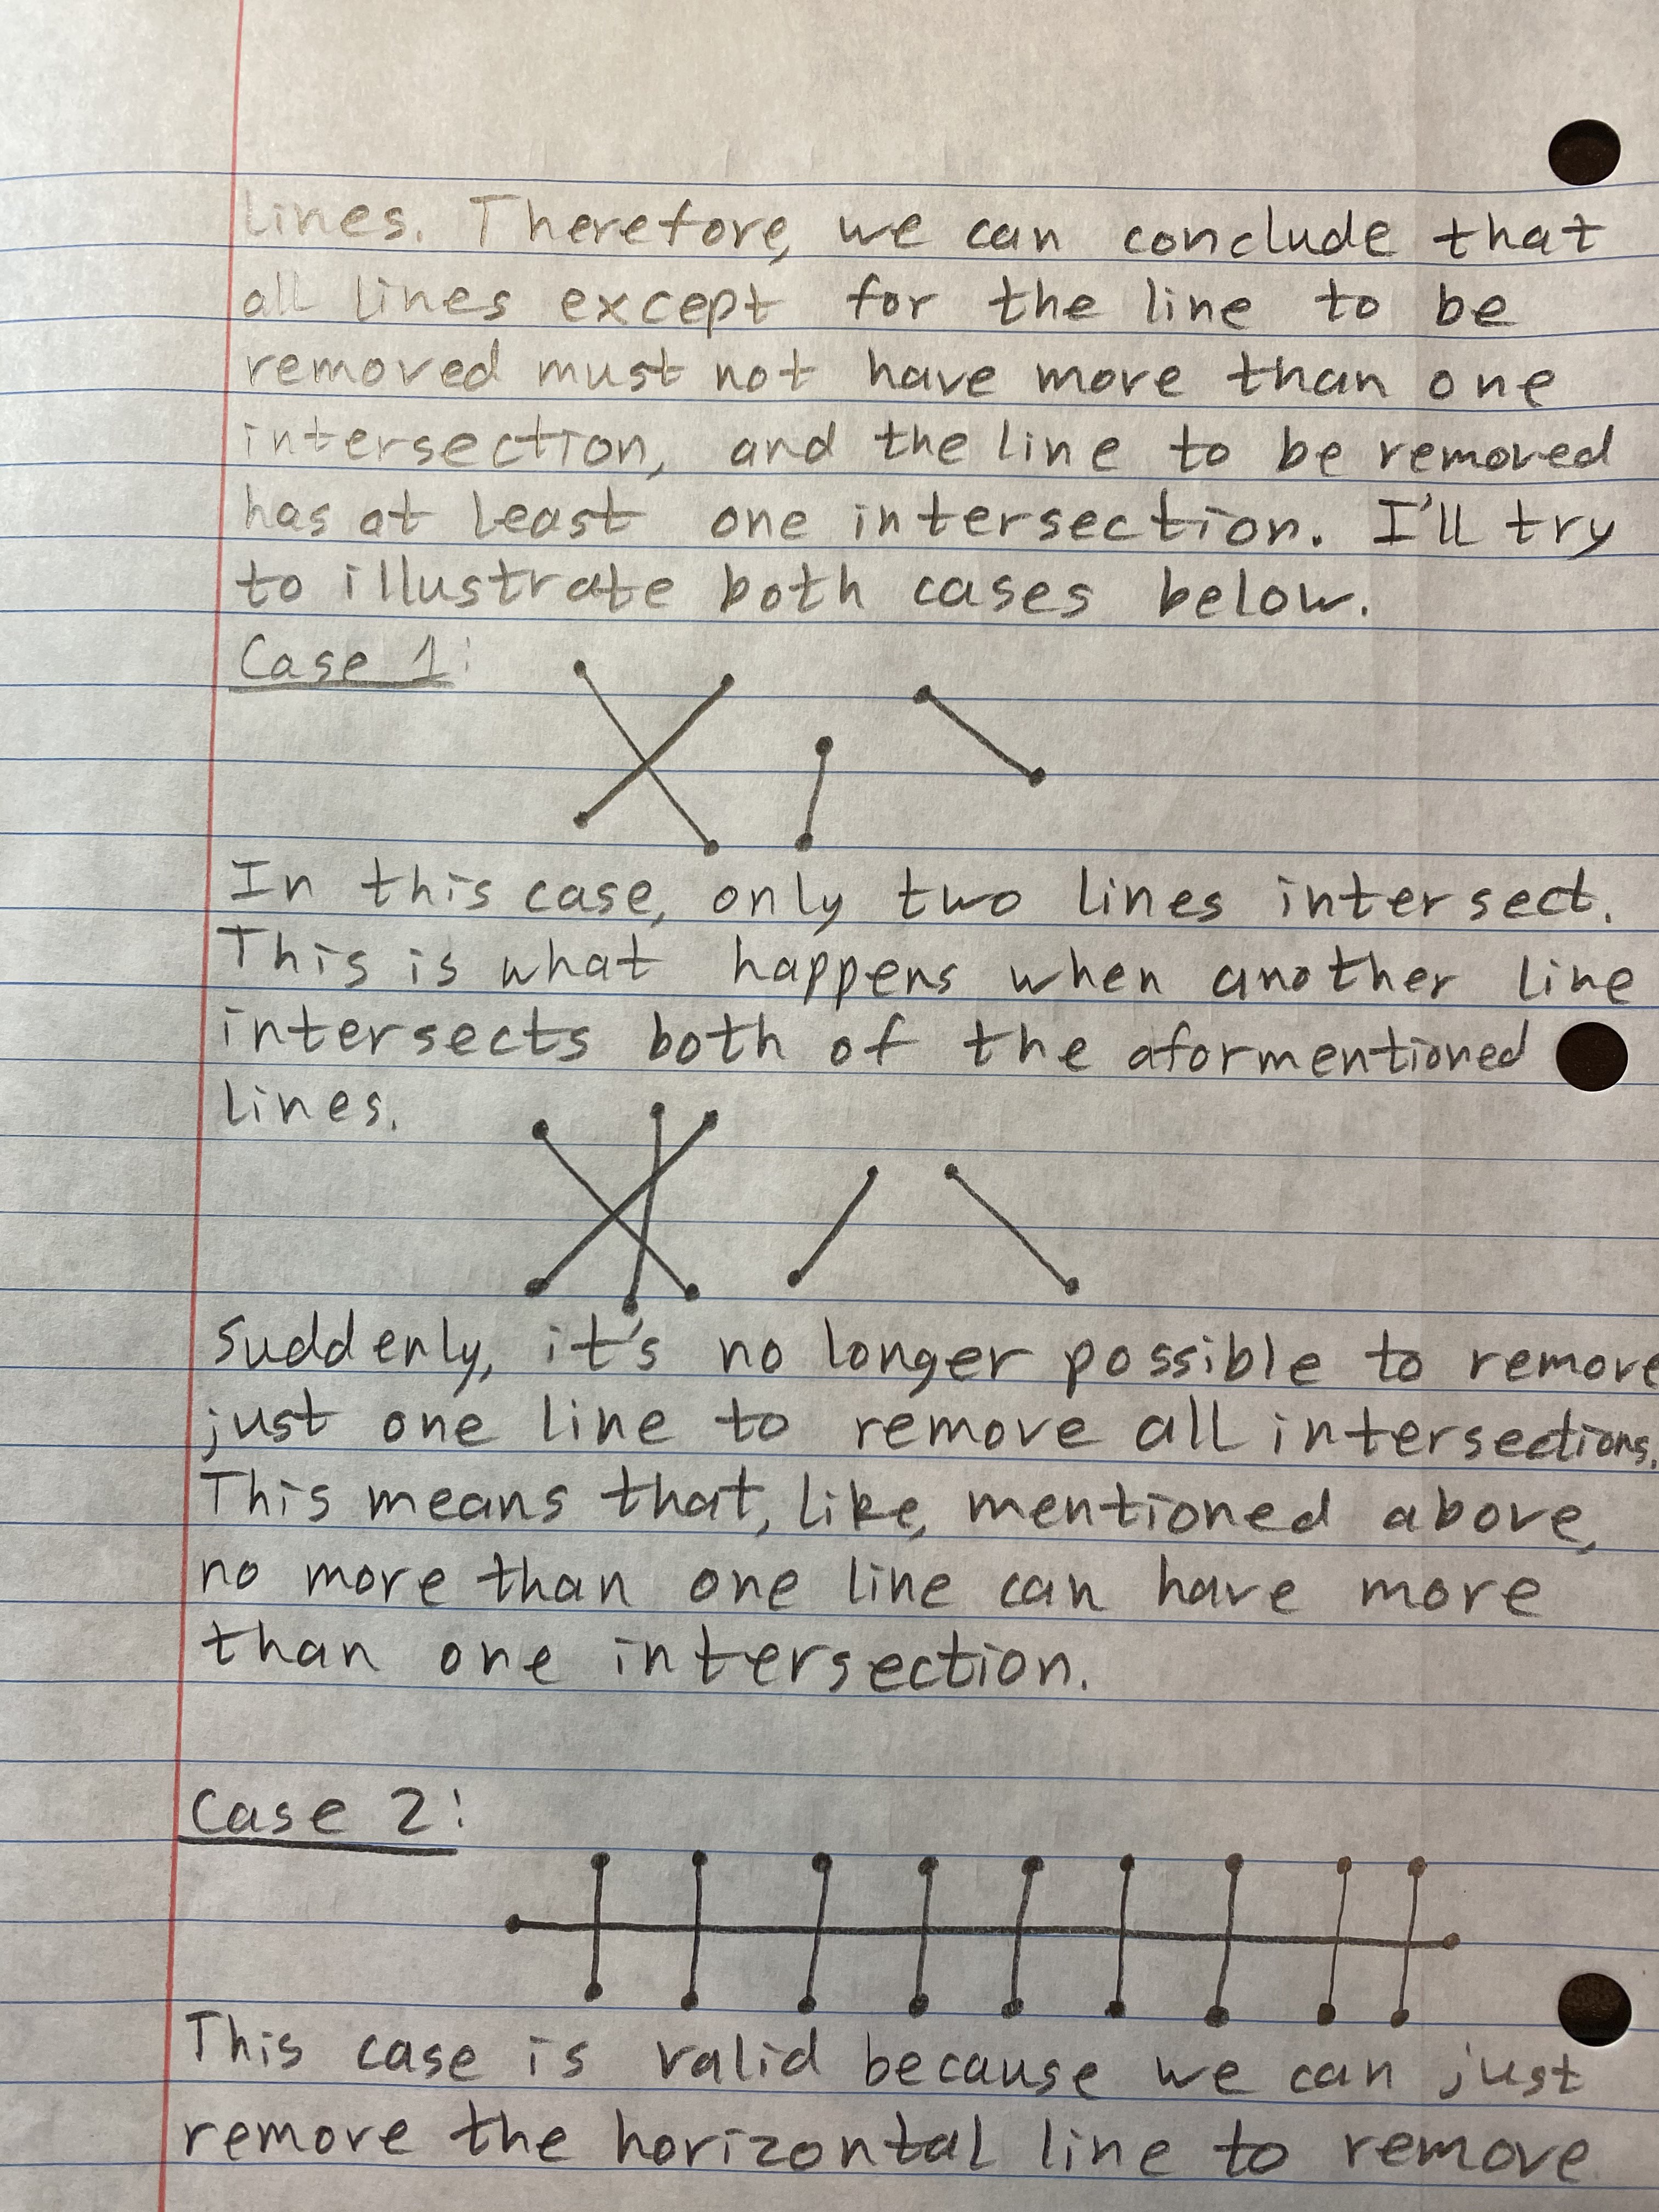 lines. Therefore, we can conclude that
all lines except for the line to be
removed must not have more than one
intersection, and the line to be removed
has at least one intersection. I'll try
to illustrate both cases below.
Case 1:
In this case, only two lines intersect.
This is what happens when another line
intersects both of the aformentioned
lines.
Suddenly, it's no longer possible to remove
just one line to remove all intersections.
This means that, like, mentioned above,
no more than one line can have more
than one intersection.
Case 2:
This case is valid because we can just
remove the horizontal line to remove